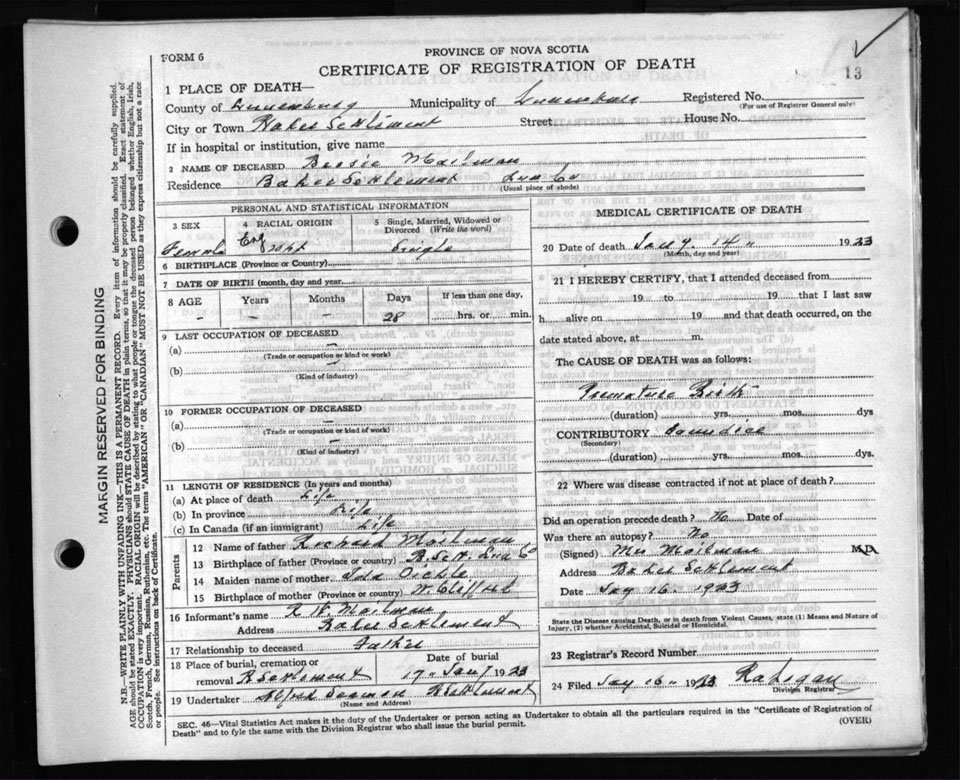 PROVINCE OF NOVA SCOTIA
FORM 6
CERTIFICATE OF REGISTRATION OF DEATH
13
1 PLACE OF DEATH—
County of Lunenburg Municipality of Lunenburg Registered No.
(For use of Registrar General only)
City or Town Baker Settlement Street House No.
If in hospital or institution, give name
2 NAME OF DECEASED Bessie Mailman
Residence Baker Settlement Lun Co
(Usual place of abode)
PERSONAL AND STATISTICAL INFORMATION
3 SEX
Female
4 RACIAL ORIGIN
Eng
5 Single, Married, Widowed or Divorced (Write the word)
Single
6 BIRTHPLACE (Province or Country)
7 DATE OF BIRTH (month, day and year)
8 AGE Years Months Days If less than one day,
– – – 28 hrs. or min.
9 LAST OCCUPATION OF DECEASED
(a) –
(Trade or occupation or kind of work)
(b) –
(Kind of industry)
10 FORMER OCCUPATION OF DECEASED
(a) –
(Trade or occupation or kind of work)
(b) –
(Kind of industry)
11 LENGTH OF RESIDENCE (In years and months)
(a) At place of death Life
(b) In province Life
(c) In Canada (if an immigrant) Life
Parents
12 Name of father Richard Mailman
13 Birthplace of father (Province or Country) B. Sett. Lun Co
14 Maiden name of mother
15 Birthplace of mother (Province or Country)
16 Informant's name R W. Mailman
Address Baker Settlement
17 Relationship to deceased Father
18 Place of burial, cremation or removal B Settlement
Date of burial
17 Jany 1923
19 Undertaker
(Name and Address)
MEDICAL CERTIFICATE OF DEATH
20 Date of death Jany. 14 1923
(Month, day and year)
21 I HEREBY CERTIFY, that I attended deceased from
19 to 19 that I last saw
h alive on 19 and that death occurred, on the
date stated above, at m.
The CAUSE OF DEATH was as follows:
Premature Birth
(duration) yrs. mos. dys
CONTRIBUTORY Jaundice
(Secondary)
(duration) yrs. mos. dys.
22 Where was disease contracted if not at place of death?
Did an operation precede death? No Date of
Was there an autopsy? No
(Signed) Mrs Mailman
Address Baker Settlement
Date Jay 16. 1923
State the Disease causing Death, or in death from Violent Causes, state (1) Means and Nature of Injury, (2) whether Accidental, Suicidal or Homicidal.
23 Registrar's Record Number
24 Filed Jay 16 1923
Division Registrar
SEC. 46—Vital Statistics Act makes it the duty of the Undertaker or person acting as Undertaker to obtain all the particulars required in the "Certificate of Registration of
Death" and to fyle the same with the Division Registrar who shall issue the burial permit.
(OVER)
MARGIN RESERVED FOR BINDING
N.B.—WRITE PLAINLY WITH UNFADING INK—THIS IS A PERMANENT RECORD. Every item of information should be carefully supplied.
AGE should be stated EXACTLY. PHYSICIANS should STATE CAUSE OF DEATH in plain terms, so that it may be properly classified. Exact statement of
OCCUPATION is very important. RACIAL ORIGIN will be described by stating to what people or tongue the deceased person belonged whether English, Irish,
Scotch, French, German, Russian, Ruthenian, etc. The terms "AMERICAN" OR "CANADIAN" MUST NOT BE USED as they express citizenship but not a race
or people. See instructions on back of Certificate.